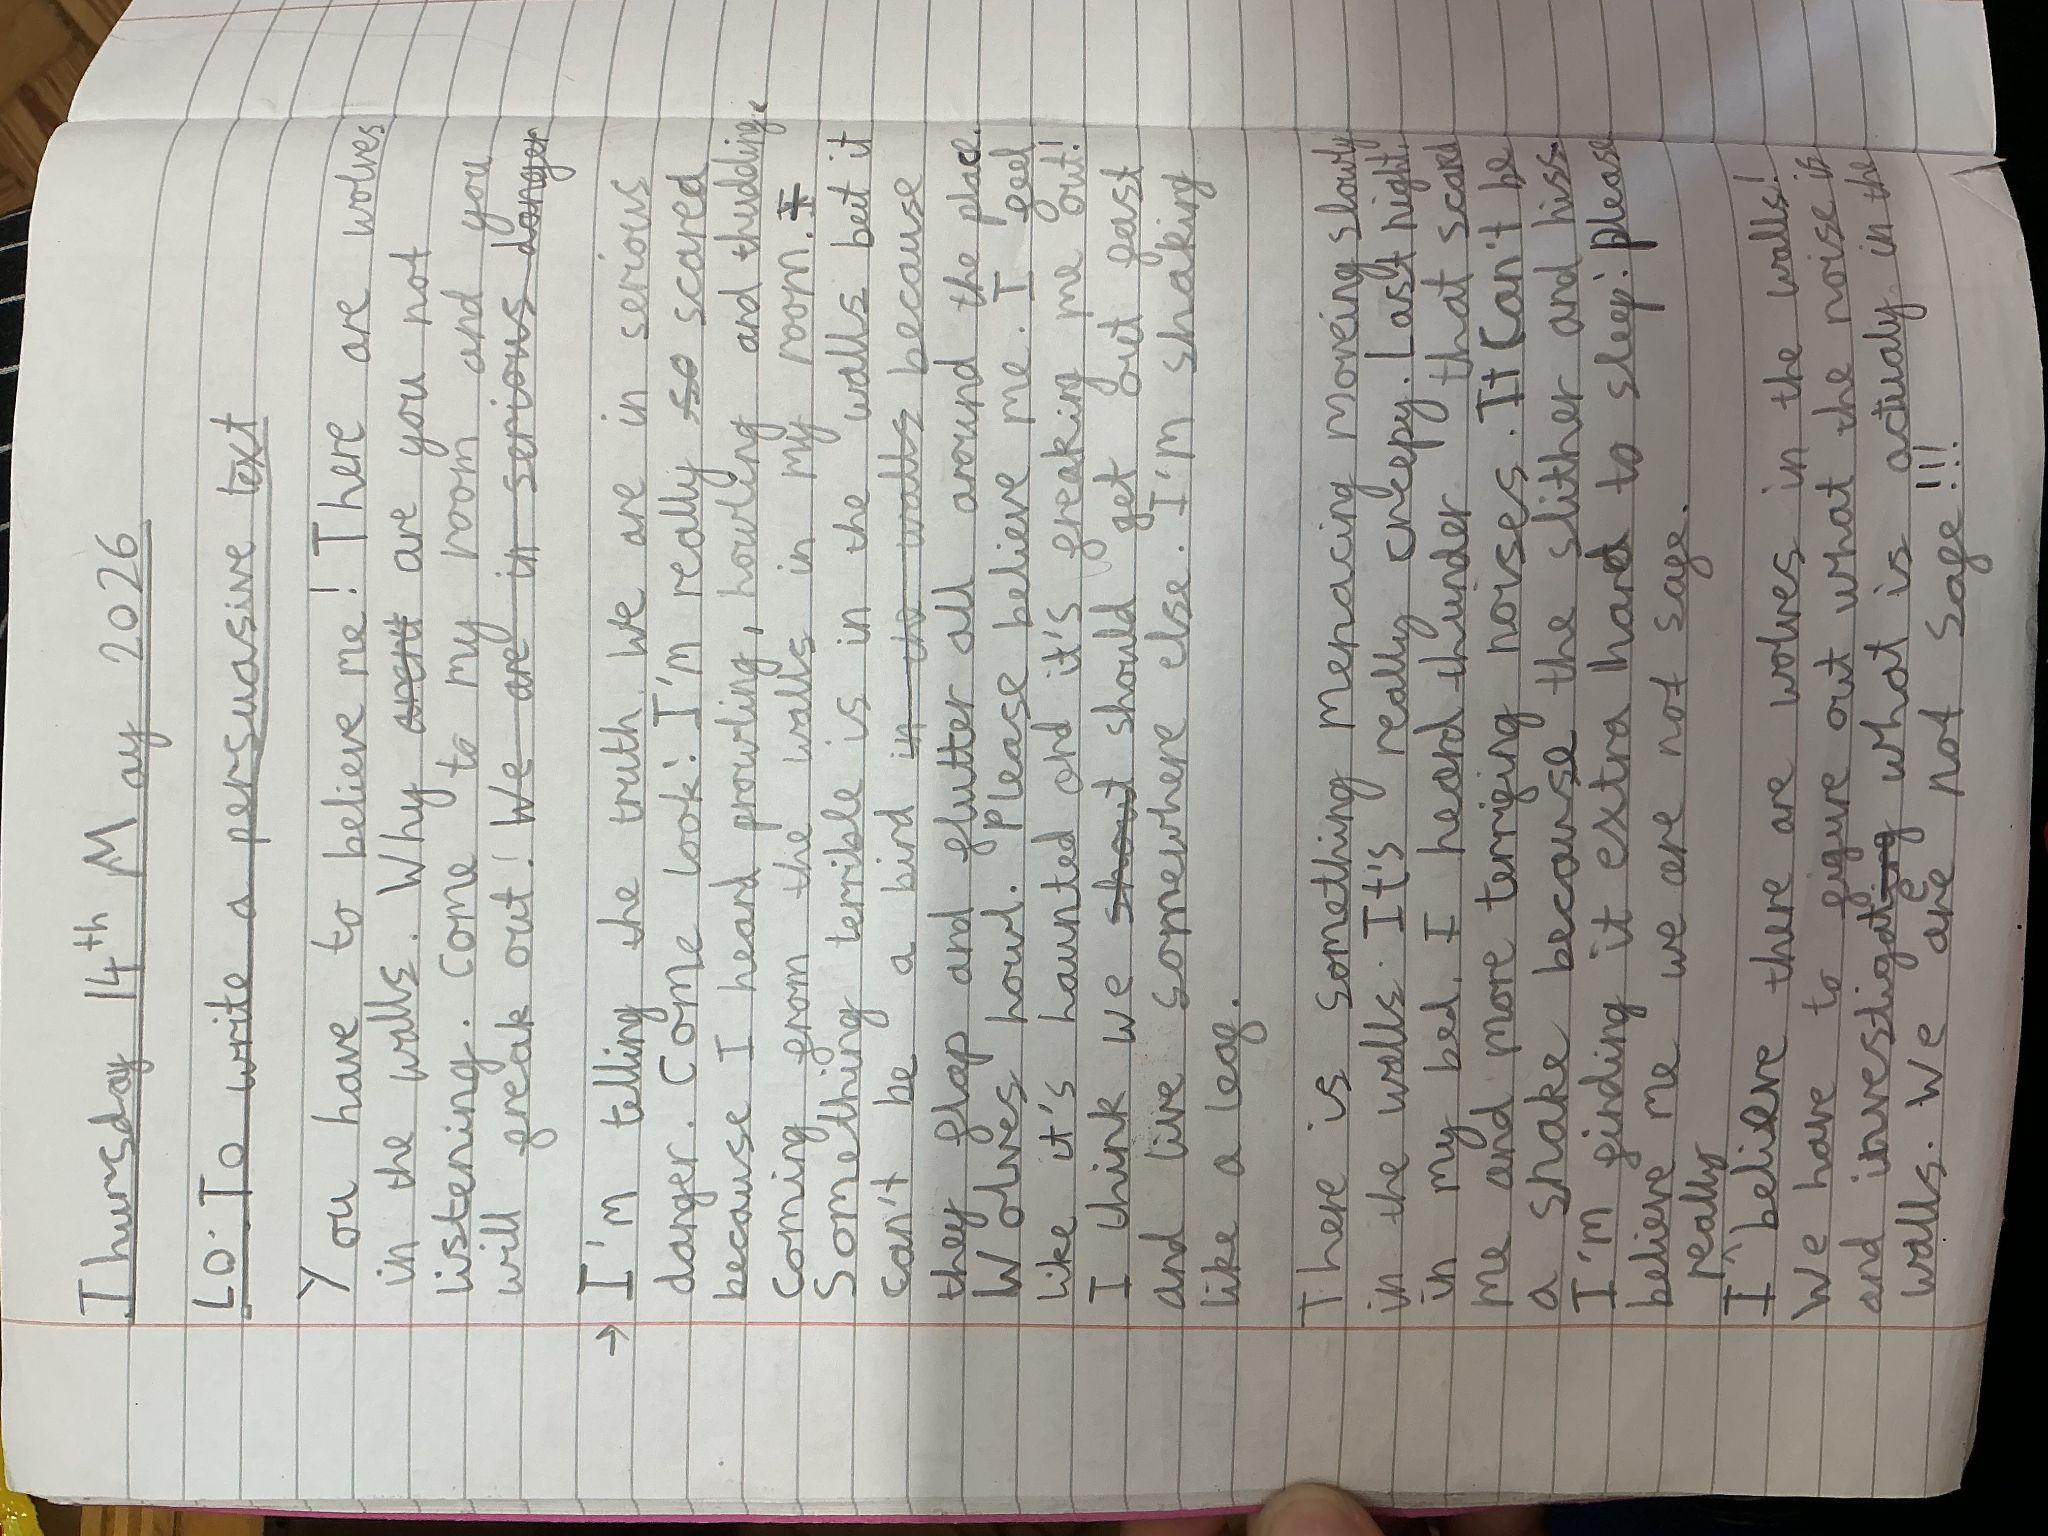 Thursday 14th May 2026
LO: To write a persuasive text
You have to believe me! There are wolves
in the walls. Why arent are you not
listening. Come to my room and you
will freak out! We are in serious danger
→ I'm telling the truth we are in serious
danger. Come look! I'm really so scared
because I heard prowling, howling and thudding
coming from the walls in my room. I
Something terrible is in the walls but it
can't be a bird in the walls because
they flap and flutter all around the place.
Wolves howl. Please believe me. I feel
like it's haunted and it's freaking me out!
I think we shout should get out fast
and live somewhere else. I'm shaking
like a leaf.
There is something menacing moveing slowly
in the walls. It's really creepy. Last night,
in my bed, I heard thunder that scard
me and more terrifing noises. It can't be
a snake because the slither and hiss.
I'm finding it extra hard to sleep! please
believe me we are not safe.
I really believe there are wolves in the walls!
We have to figure out what the noise is
and investigating e what is actualy in the
walls. We are not safe!!!